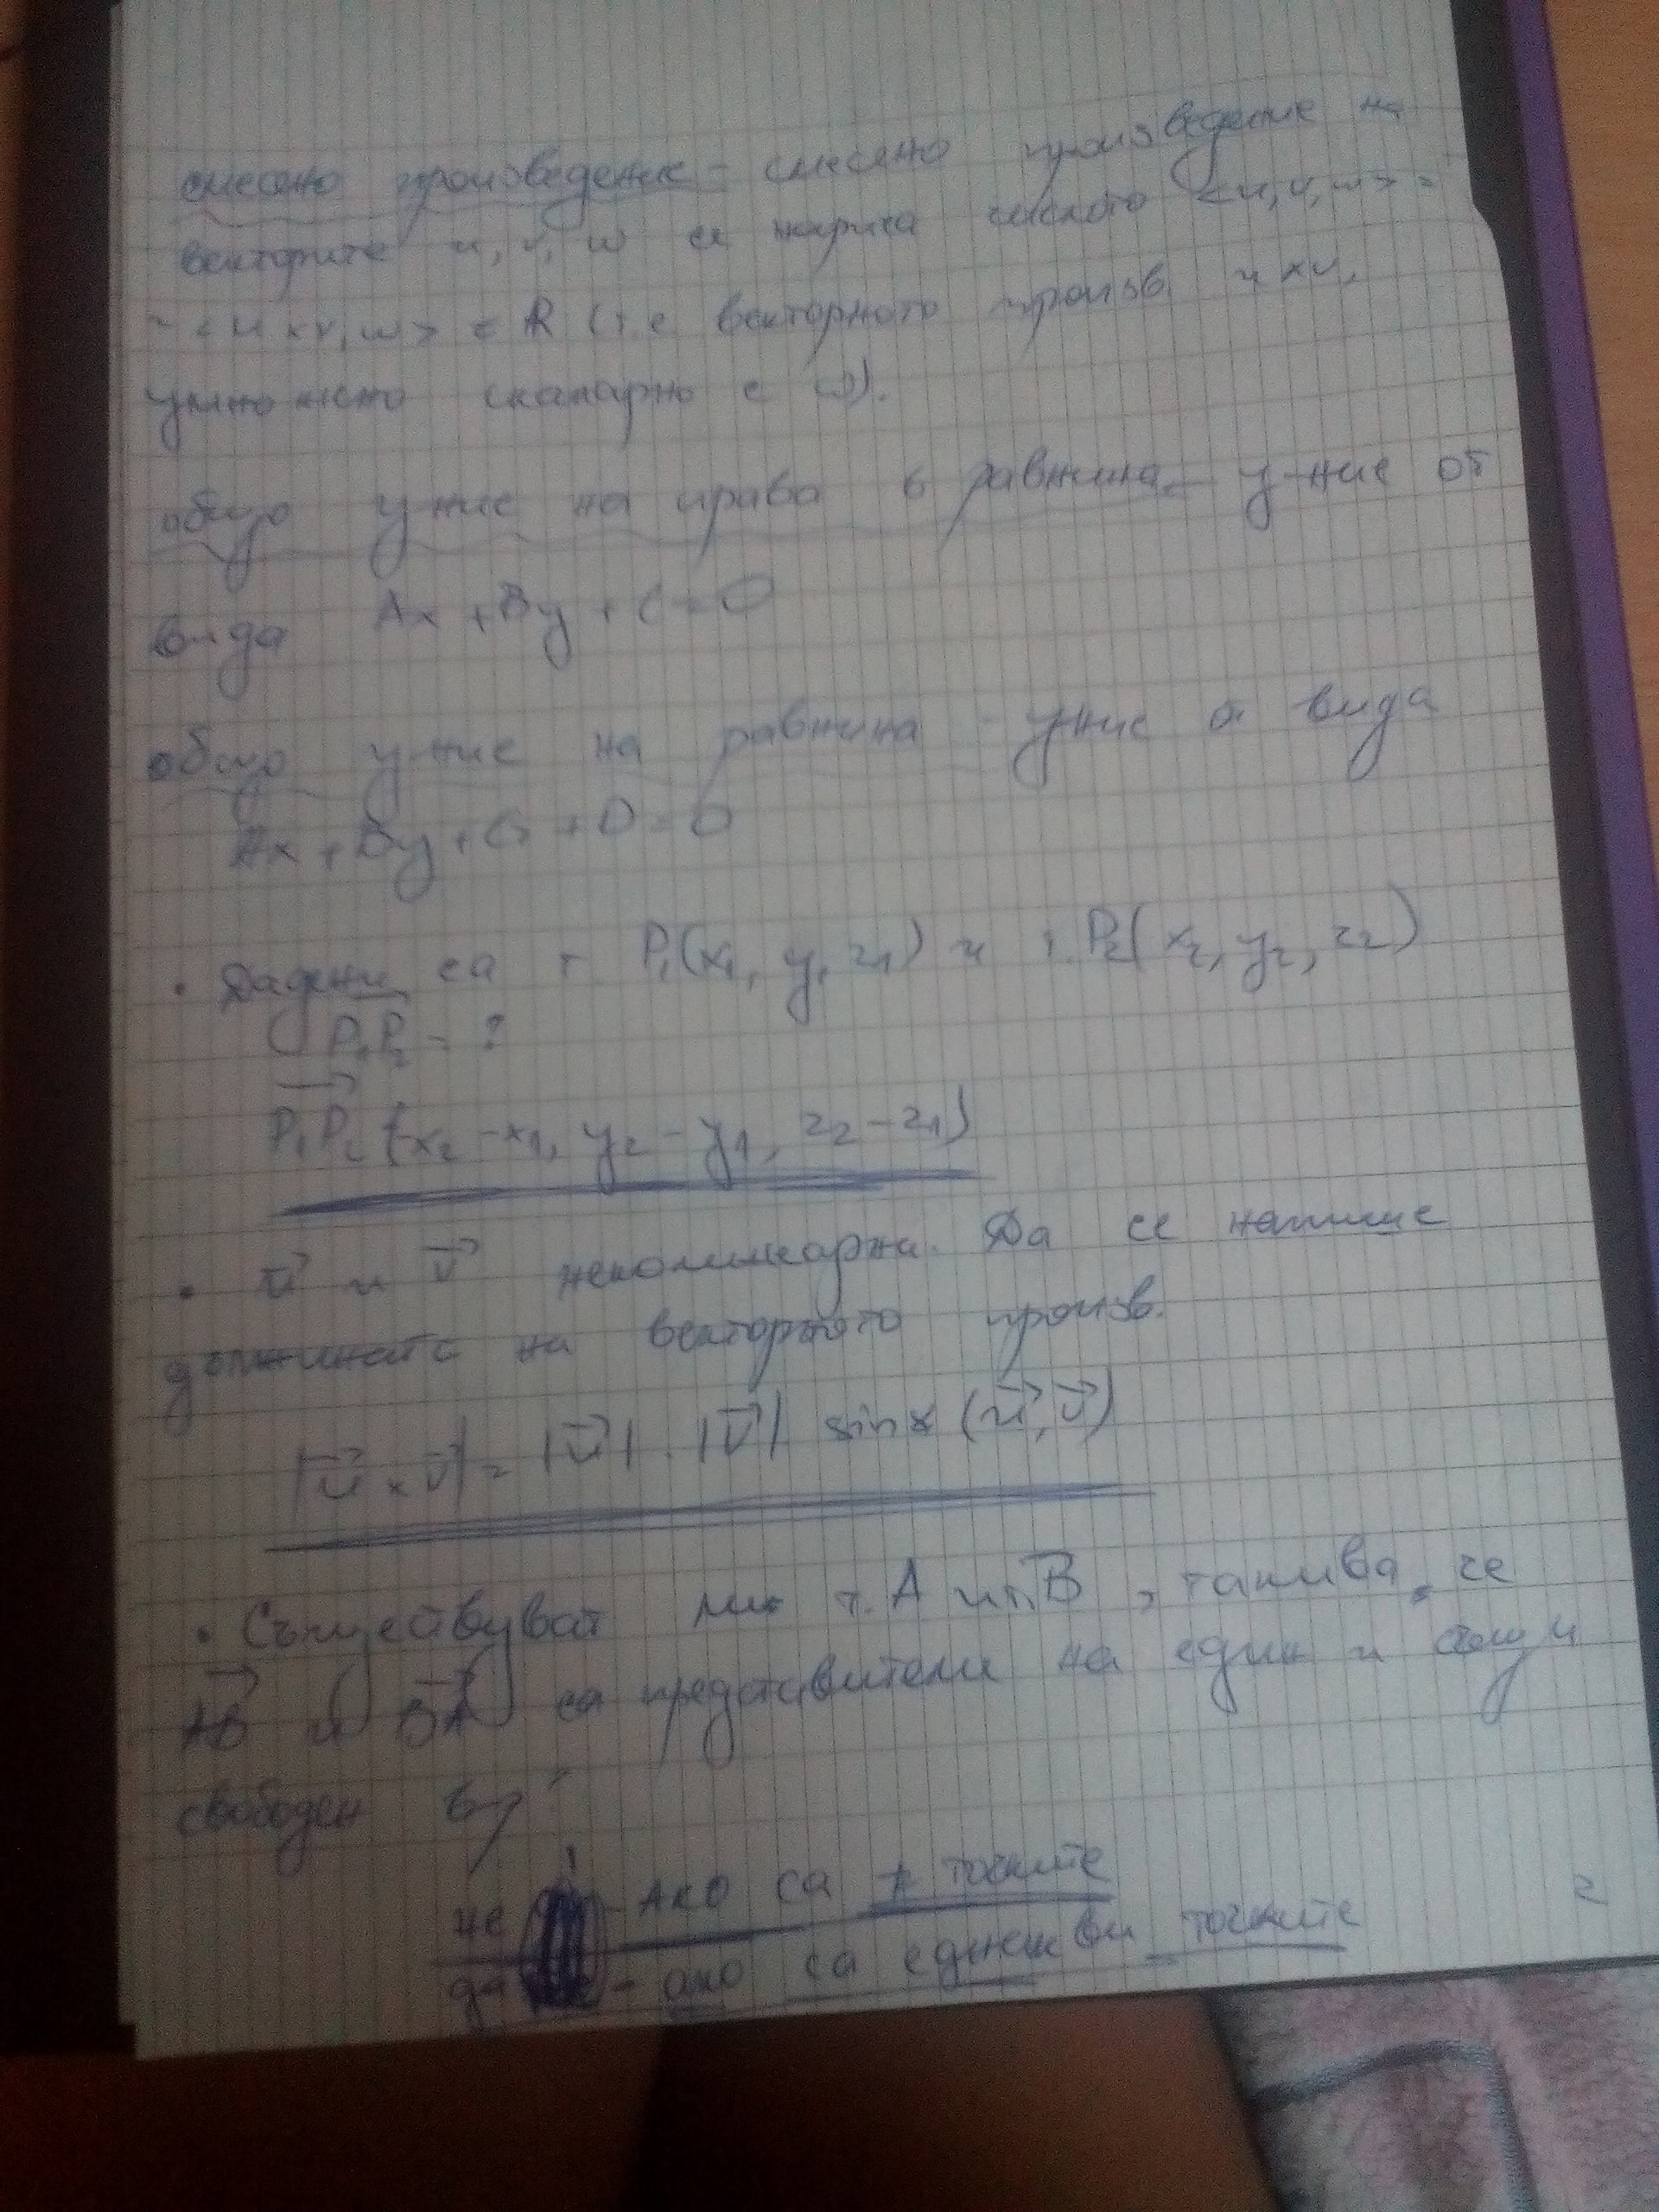 смесено произведение - смесено произведение на
векторите u, v, w се нарича числото <u, v, w> =
= <u x v, w> ∈ R (т.е векторното произв. u x v,
умножено скаларно с w).
общо у-ние на права в равнина - у-ние от
вида Ax + By + C = 0
общо у-ние на равнина - у-ние от вида
Ax + By + Cz + D = 0
• Дадени са т. P₁(x₁, y₁, z₁) и т. P₂(x₂, y₂, z₂)
P₁P₂ = ?
P₁P₂ (x₂ - x₁, y₂ - y₁, z₂ - z₁)
• u и v неколинеарни. Да се напише
дължината на векторното произв.
|u x v| = |u| . |v| sin ∢ (u, v)
• Съществуват ли т. A и т. B, такива, че
AB и BA са представители на един и същ
свободен в-р?
не - ако са ≠ точките
да - ако са еднакви точките
2